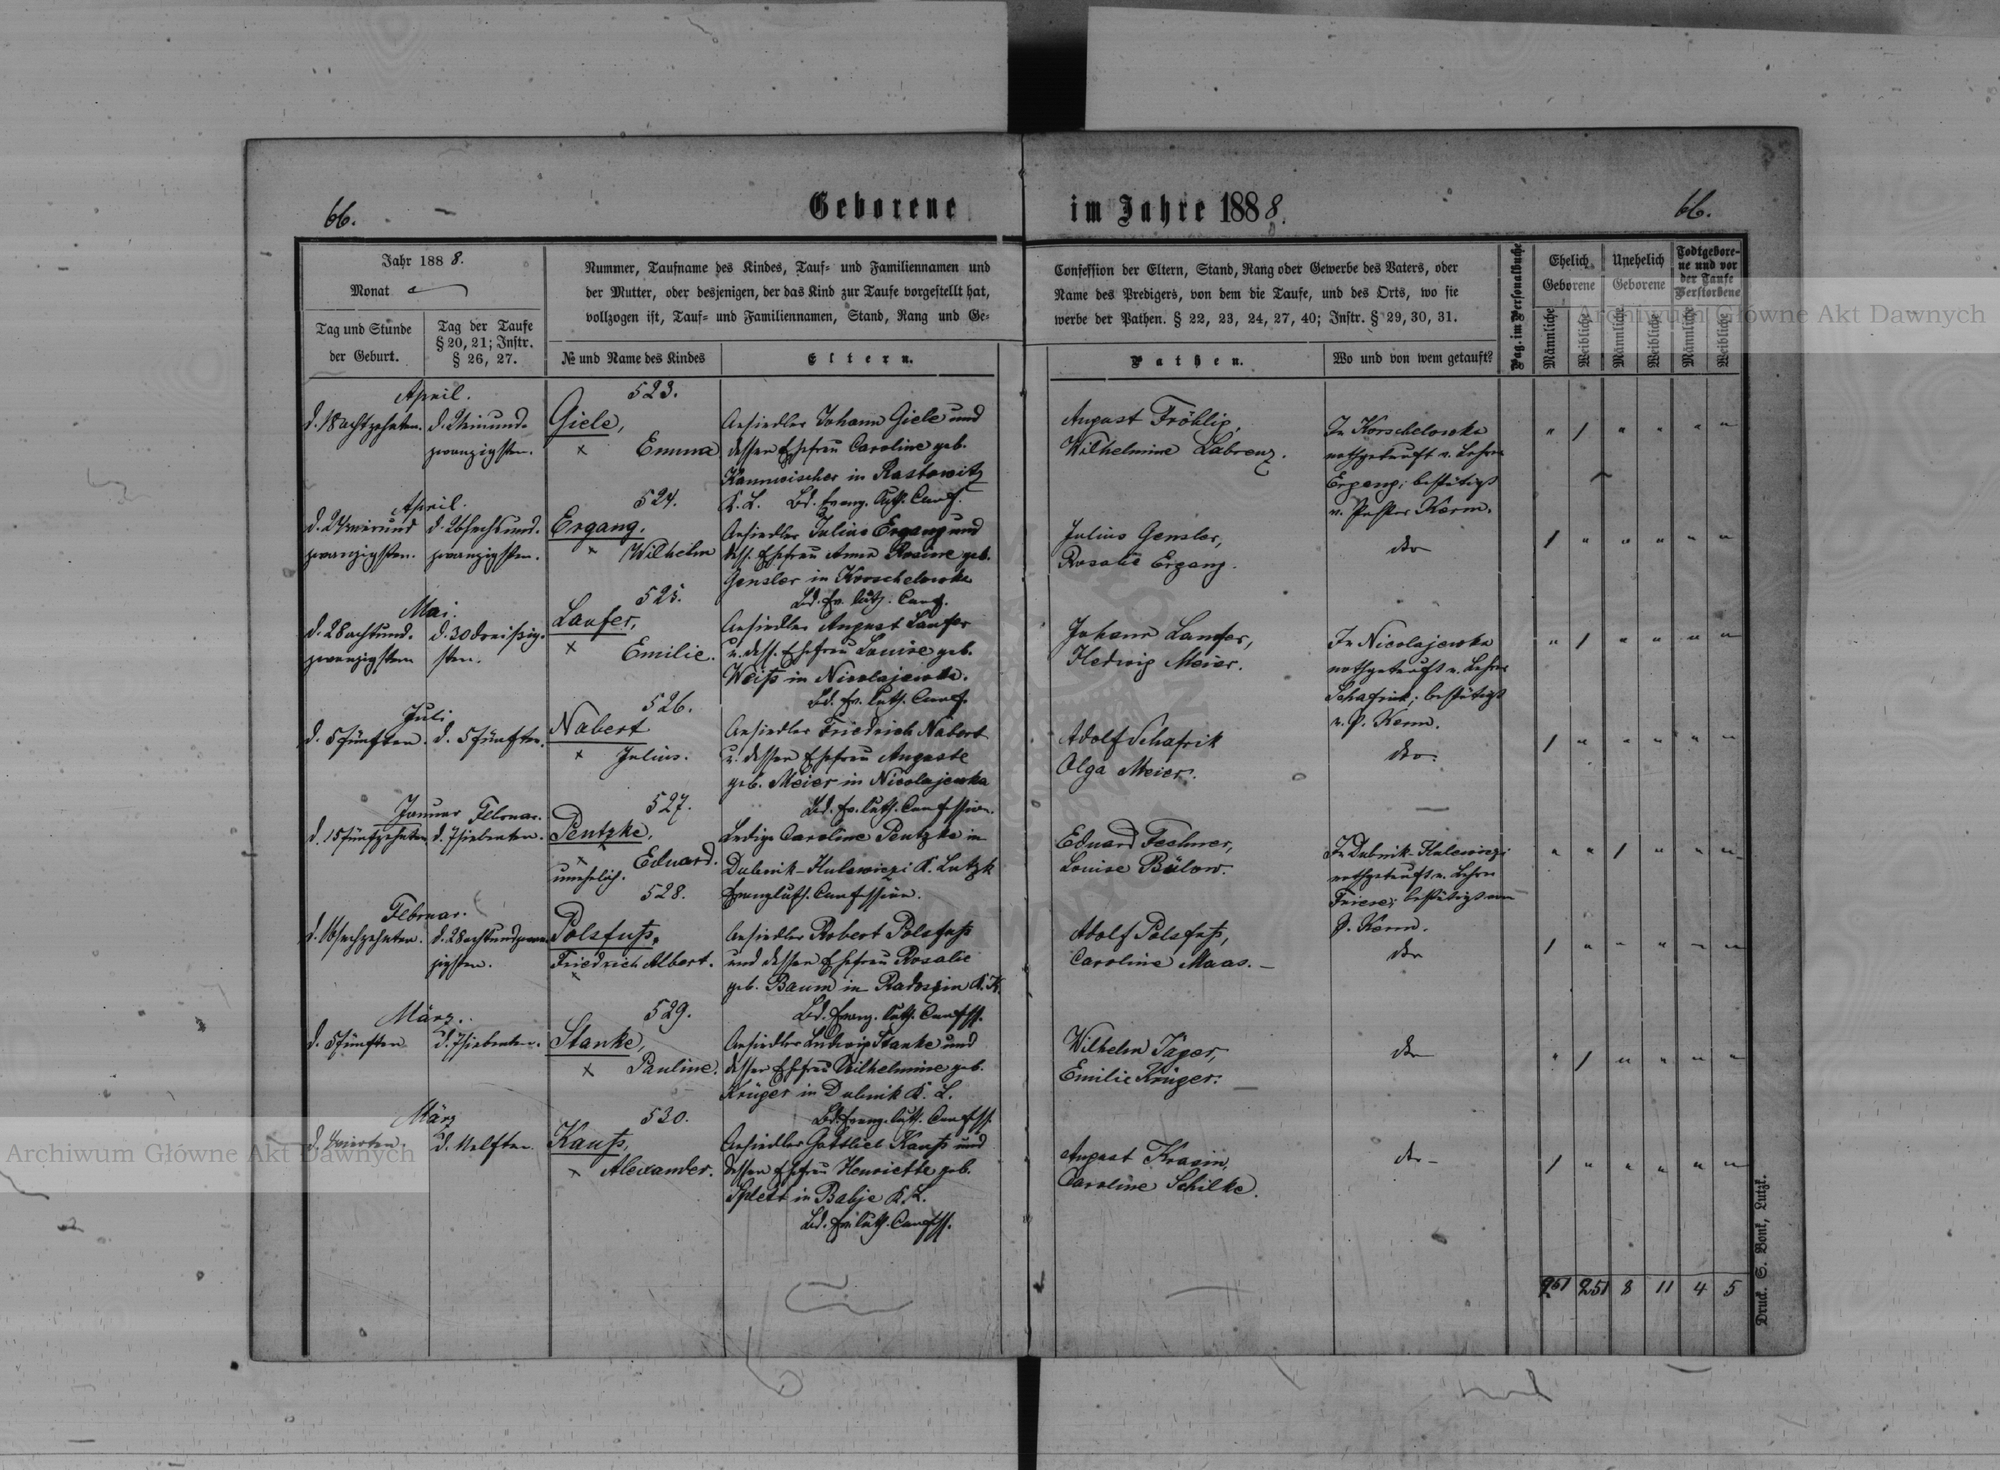 66.
Geborene im Jahre 1888.
66.
Jahr 1888.
Monat
Tag und Stunde
der Geburt.
Tag der Taufe
§ 20, 21; Instr.
§ 26, 27.
Nummer, Taufname des Kindes, Tauf- und Familiennamen und
der Mutter, oder desjenigen, der das Kind zur Taufe vorgestellt hat,
vollzogen ist, Tauf- und Familiennamen, Stand, Rang und Ge-
№ und Name des Kindes
Eltern.
Confession der Eltern, Stand, Rang oder Gewerbe des Vaters, oder
Name des Predigers, von dem die Taufe, und des Orts, wo sie
werbe der Pathen. § 22, 23, 24, 27, 40; Instr. § 29, 30, 31.
Pathen.
Wo und von wem getauft?
Pag. im Personalbuche
Ehelich
Geborene
Unehelich
Geborene
Todtgebore-
ne und vor
der Taufe
Verstorbene
Männliche
Weibliche
Männliche
Weibliche
Männliche
Weibliche
April.
523.
d. 18 achtzehnten.
zwanzigsten.
Giele,
× Emma
Ansiedler Johann Giele und
dessen Ehefrau Caroline geb.
Kannwischer in Rastowitz
K. L. Bd. Evang. luth. Conf.
August Fröhlig,
Wilhelmine Labrenz.
In Korschelowka
nothgetauft v. Lehrer
Ergang; bestätigt
v. Pastor Kerm.
" / " " " "
April.
524.
zwanzigsten.
d. 26 sechsund-
zwanzigsten.
Ergang.
× Wilhelm
Ansiedler Julius Ergang und
dess. Ehefrau Anna Rosine geb.
Gensler in Korschelowka
Bd. Ev. luth. Conf.
Julius Gensler,
Rosalie Ergang.
dto
/ " " " " "
Mai.
525.
d. 28 achtund-
zwanzigsten
d. 30 dreißig-
sten.
Laufer,
× Emilie.
Ansiedler August Laufer
u. dess. Ehefrau Louise geb.
Weiß in Nicolajewka.
Bd. Ev. luth. Conf.
Johann Laufer,
Hedwig Meier.
In Nicolajewka
nothgetauft v. Lehrer
Schafrik; bestätigt
v. P. Kerm.
" / " " " "
Juli
526.
d. 5 fünften.
d. 5 fünften.
Nabert
× Julius.
Ansiedler Friedrich Nabert
u. dessen Ehefrau Auguste
geb. Meier in Nicolajewka
Bd. Ev. luth. Confession.
Adolf Schafrik
Olga Meier.
dto.
/ " " " " "
Januar
Februar.
527.
d. 15 fünfzehnten
d. 7 siebenten.
Pentzke,
× Eduard.
unehelich.
Ledige Caroline Pentzke in
Dubnik-Hulewiczi K. Lutzk
Evang. luth. Confession.
Eduard Fechner,
Louise Bülow.
In Dubnik-Hulewiczi
nothgetauft v. Lehrer
Friese; bestätigt von
P. Kerm.
" " / " " "
Februar.
528.
d. 16 sechzehnten.
d. 28 achtundzwan-
zigsten.
Polsfuß,
Friedrich Albert.
×
Ansiedler Robert Polsfuß
und dessen Ehefrau Rosalie
geb. Baum in Radoszin K. K.
Bd. Evang. luth. Confess.
Adolf Polsfuß,
Caroline Maas.
dto
/ " " " " "
März.
529.
d. 5 fünften
d. 7 siebenten.
Stanke,
× Pauline.
Ansiedler Ludwig Stanke und
dessen Ehefrau Wilhelmine geb.
Krüger in Dubnik K. L.
Bd. Evang. luth. Confess.
Wilhelm Jäger,
Emilie Krüger.
dto
" / " " " "
März
530.
d. 4 vierten.
d. 11 elften.
Kauß,
× Alexander.
Ansiedler Gottlieb Kauß und
dessen Ehefrau Henriette geb.
Splett in Babje K. L.
Bd. Ev. luth. Confess.
August Krasin,
Caroline Schilke.
dto
/ " " " " "
251 251 8 11 4 5
Druck. S. Bonk, Lutzk.
Archiwum Główne Akt Dawnych
Archiwum Główne Akt Dawnych